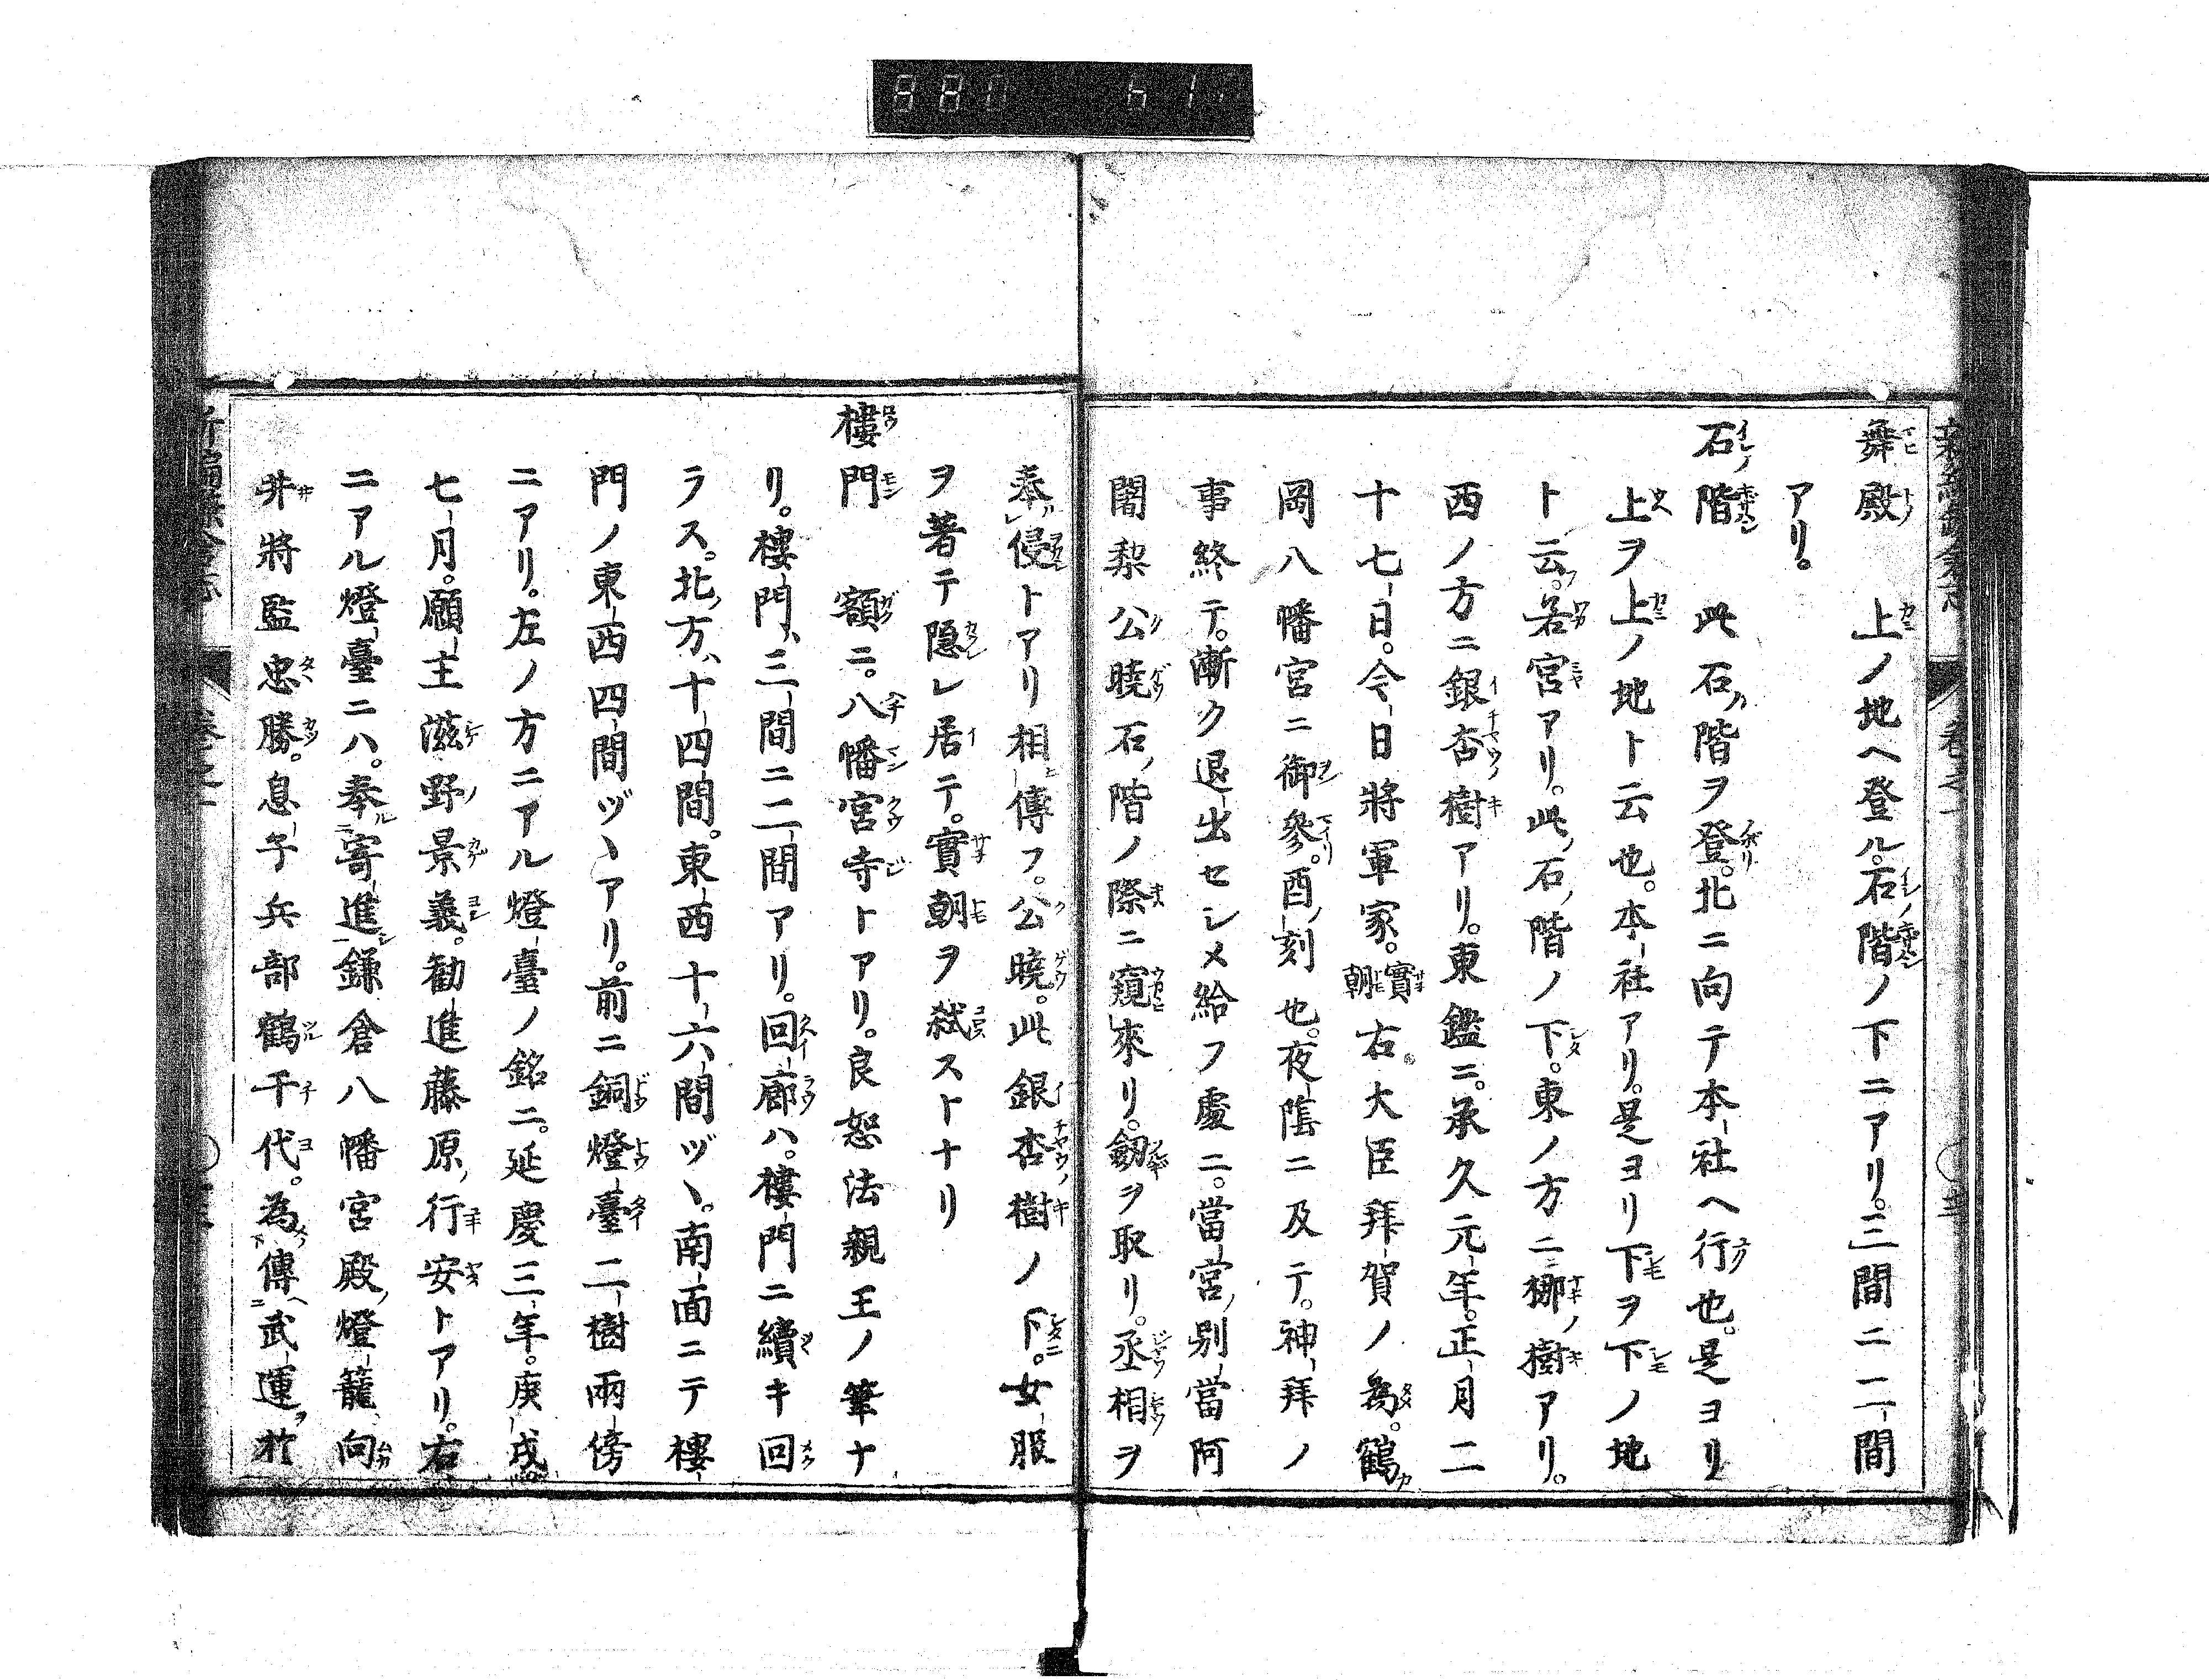 舞殿　上ノ地ヘ登ル。石階ノ下ニアリ。三間ニ二間
アリ。
石階　此石階ヲ登。北ニ向テ本社ヘ行也。是ヨリ
上ヲ上ノ地ト云也。本社アリ。是ヨリ下ヲ下ノ地
ト云。若宮アリ。此石階ノ下。東ノ方ニ梛樹アリ。
西ノ方ニ銀杏樹アリ。東鑑ニ。承久元年。正月二
十七日。今日將軍家。實朝右大臣拜賀ノ為。鶴
岡八幡宮ニ御參。酉刻也。夜陰ニ及テ。神拜ノ
事終テ。漸ク退出セシメ給フ處ニ。當宮別當阿
闍梨公曉石階ノ際ニ窺來リ。劔ヲ取リ。丞相ヲ
奉侵トアリ相傳フ。公曉。此銀杏樹ノ下。女服
ヲ著テ隠レ居テ。實朝ヲ弑ストナリ
樓門　額ニ。八幡宮寺トアリ。良恕法親王ノ筆ナ
リ。樓門、三間ニ二間アリ。回廊ハ。樓門ニ續キ回
ラス。北方、十四間。東西十六間ヅヽ。南面ニテ樓
門ノ東西四間ヅヽアリ。前ニ銅燈臺二樹兩傍
ニアリ。左ノ方ニアル燈臺ノ銘ニ。延慶三年。庚戌
七月。願主滋野景義。勧進藤原行安トアリ。右
ニアル燈臺ニハ。奉寄進鎌倉八幡宮殿燈籠向
井將監忠勝。息子兵部鶴千代。為傳武運於
新編鎌倉志
卷之一